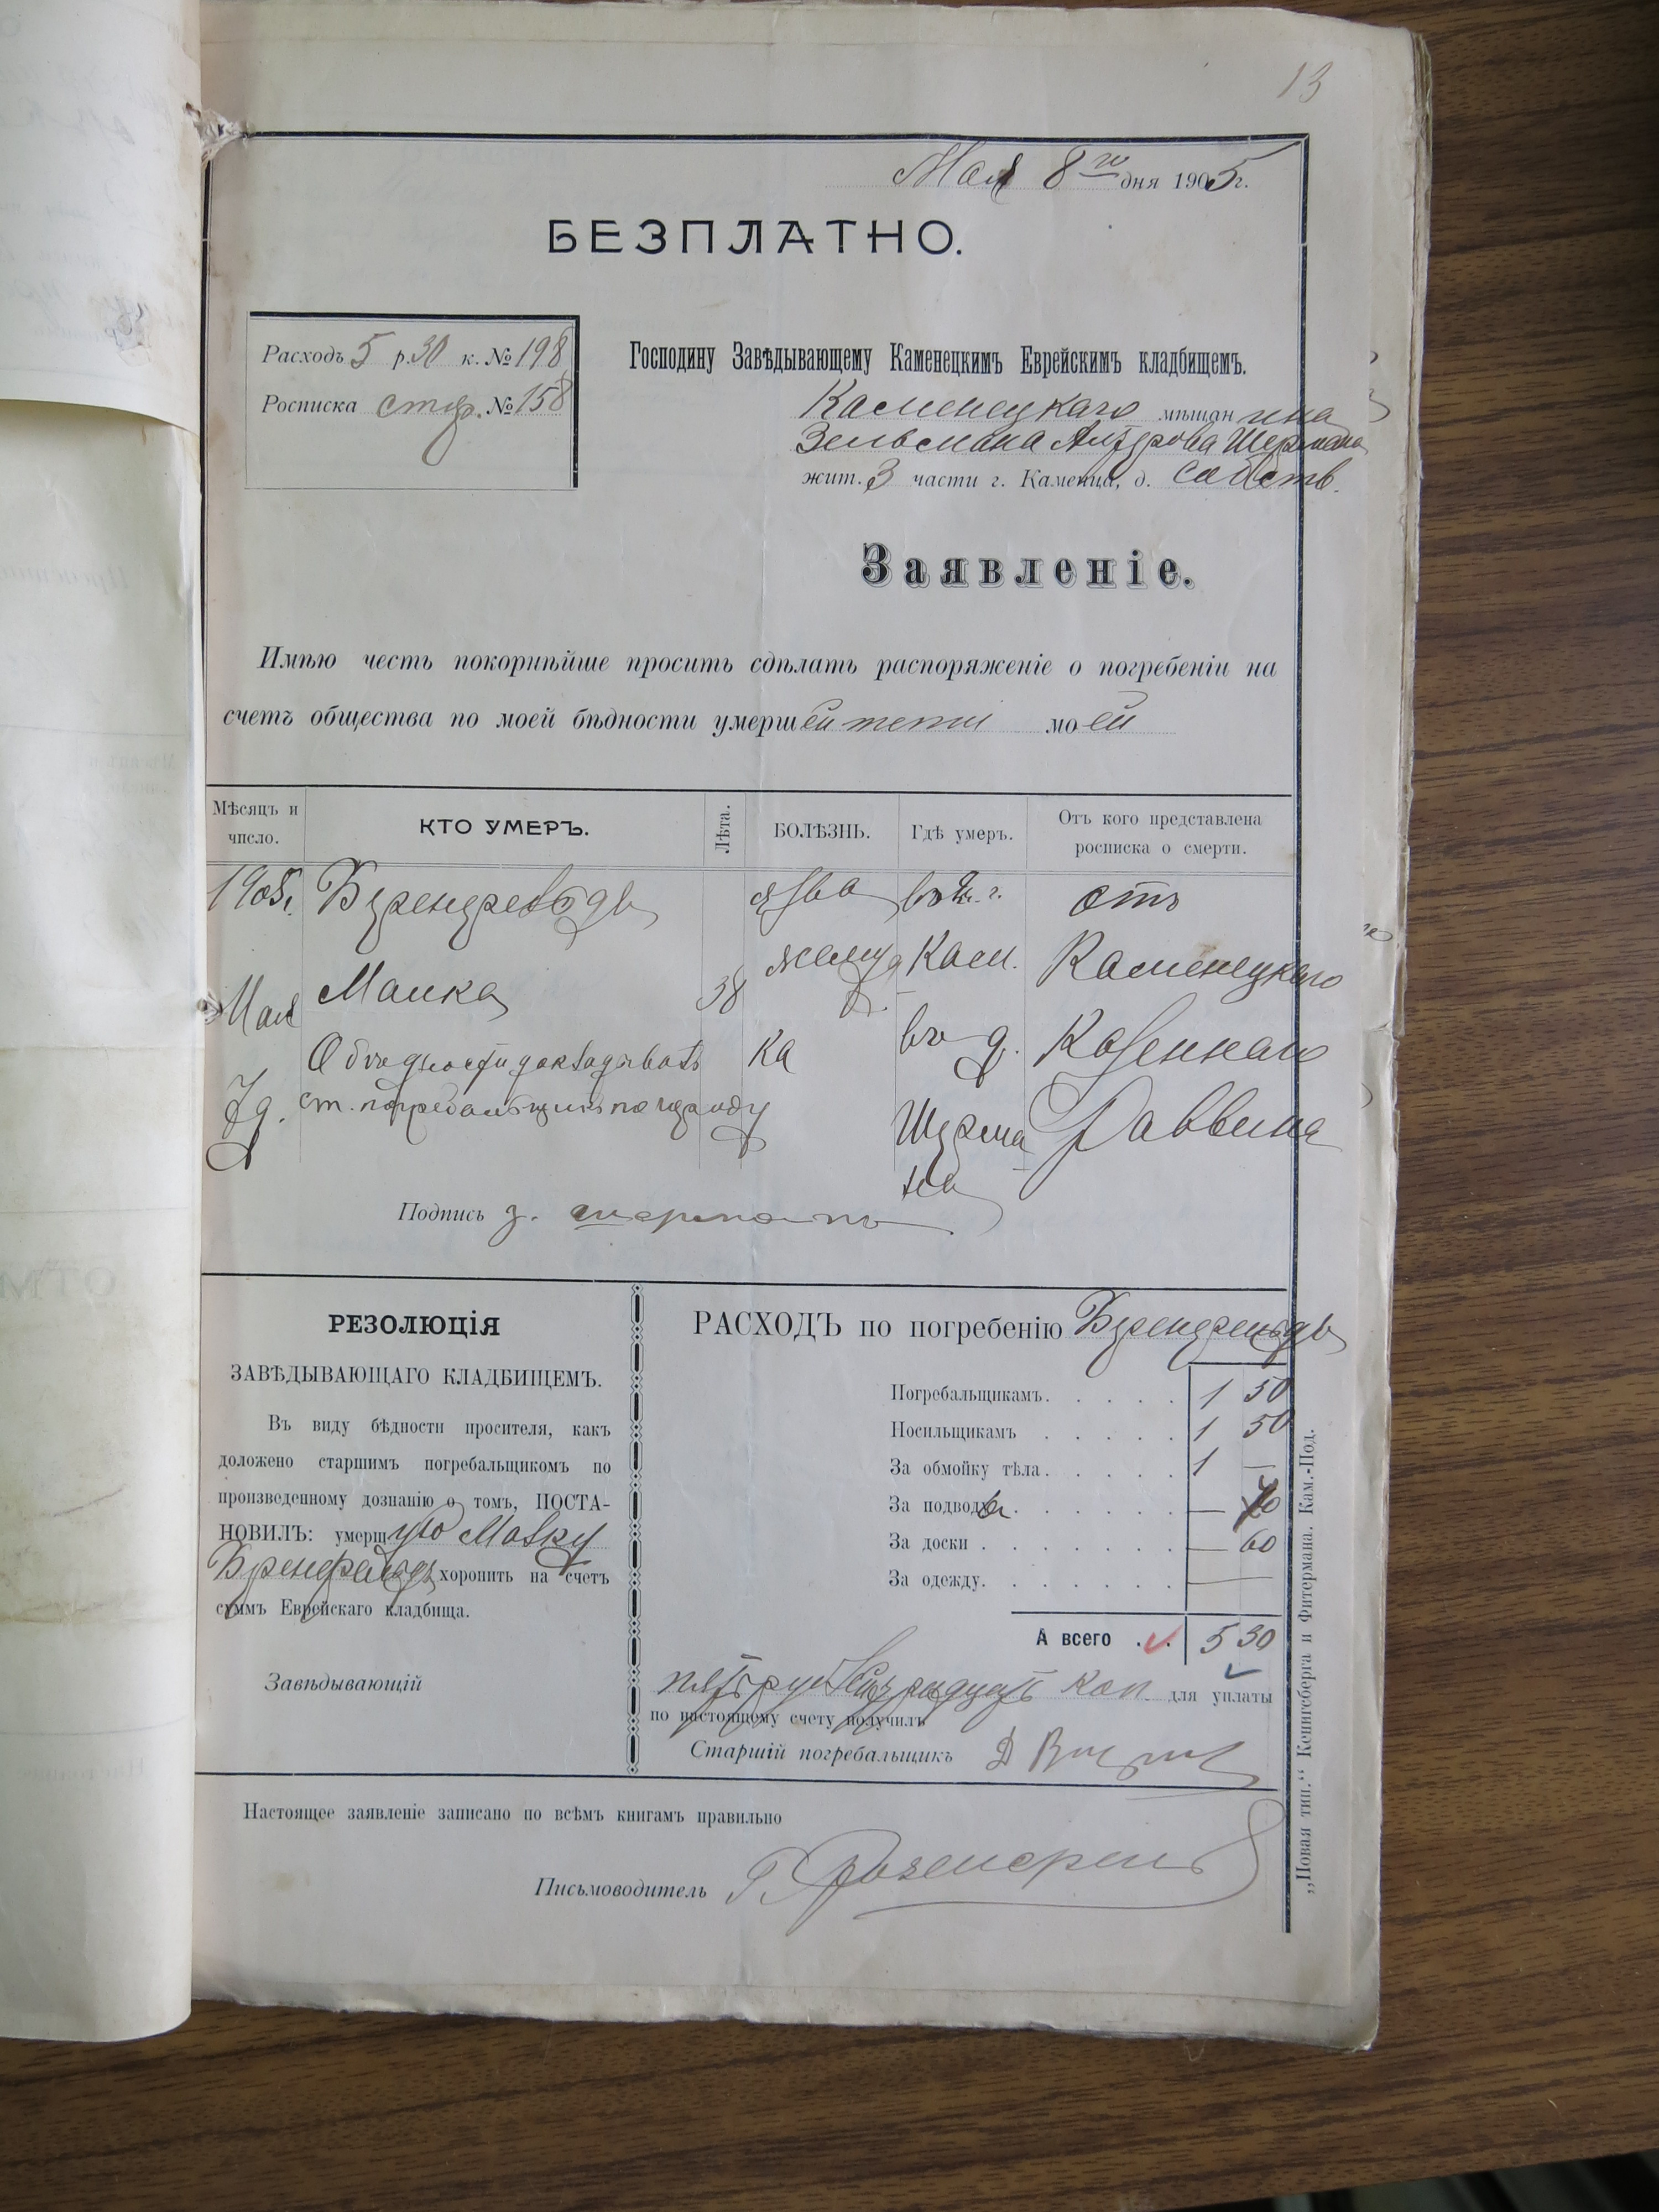 13
Мая 8го дня 1905 г.
БЕЗПЛАТНО.
Расходъ 5 р. 30 к. № 198
Росписка стор. № 158
Господину Завѣдывающему Каменецкимъ Еврейскимъ кладбищемъ.
Каменецкаго мѣщанина
Зельмана Шермана
жит. 3 части г. Каменца, д. собств.
Заявленіе.
Имѣю честь покорнѣйше просить сдѣлать распоряженіе о погребеніи на
счетъ общества по моей бѣдности умершей тети моей
Мѣсяцъ и число. КТО УМЕРЪ. Лѣта. БОЛѢЗНЬ. Гдѣ умеръ. Отъ кого представлена росписка о смерти.
1905 г. язва въ г. отъ
Мая 38 желуд Кам. Каменецкаго
О бѣдности докладывалъ ка въ д. Казеннаго
7 д. ст. погребальщикъ Шерма Раввина
на
Подпись З. Шерманъ
РЕЗОЛЮЦІЯ
ЗАВѢДЫВАЮЩАГО КЛАДБИЩЕМЪ.
Въ виду бѣдности просителя, какъ
доложено старшимъ погребальщикомъ по
произведенному дознанію о томъ, ПОСТА-
НОВИЛЪ: умершую
хоронить на счетъ
суммъ Еврейскаго кладбища.
Завѣдывающій
РАСХОДЪ по погребенію
Погребальщикамъ. . . . . 1 50
Носильщикамъ . . . . . 1 50
За обмойку тѣла. . . . . 1 —
За подводы . . . . . . — 70
За доски . . . . . . . — 60
За одежду. . . . . . . —
А всего . . 5 30
пять руб. тридцать коп. для уплаты
по настоящему счету получилъ
Старшій погребальщикъ
Настоящее заявленіе записано по всѣмъ книгамъ правильно
Письмоводитель
„Новая тип.“ Кенигсберга и Фитермана. Кам.-Под.